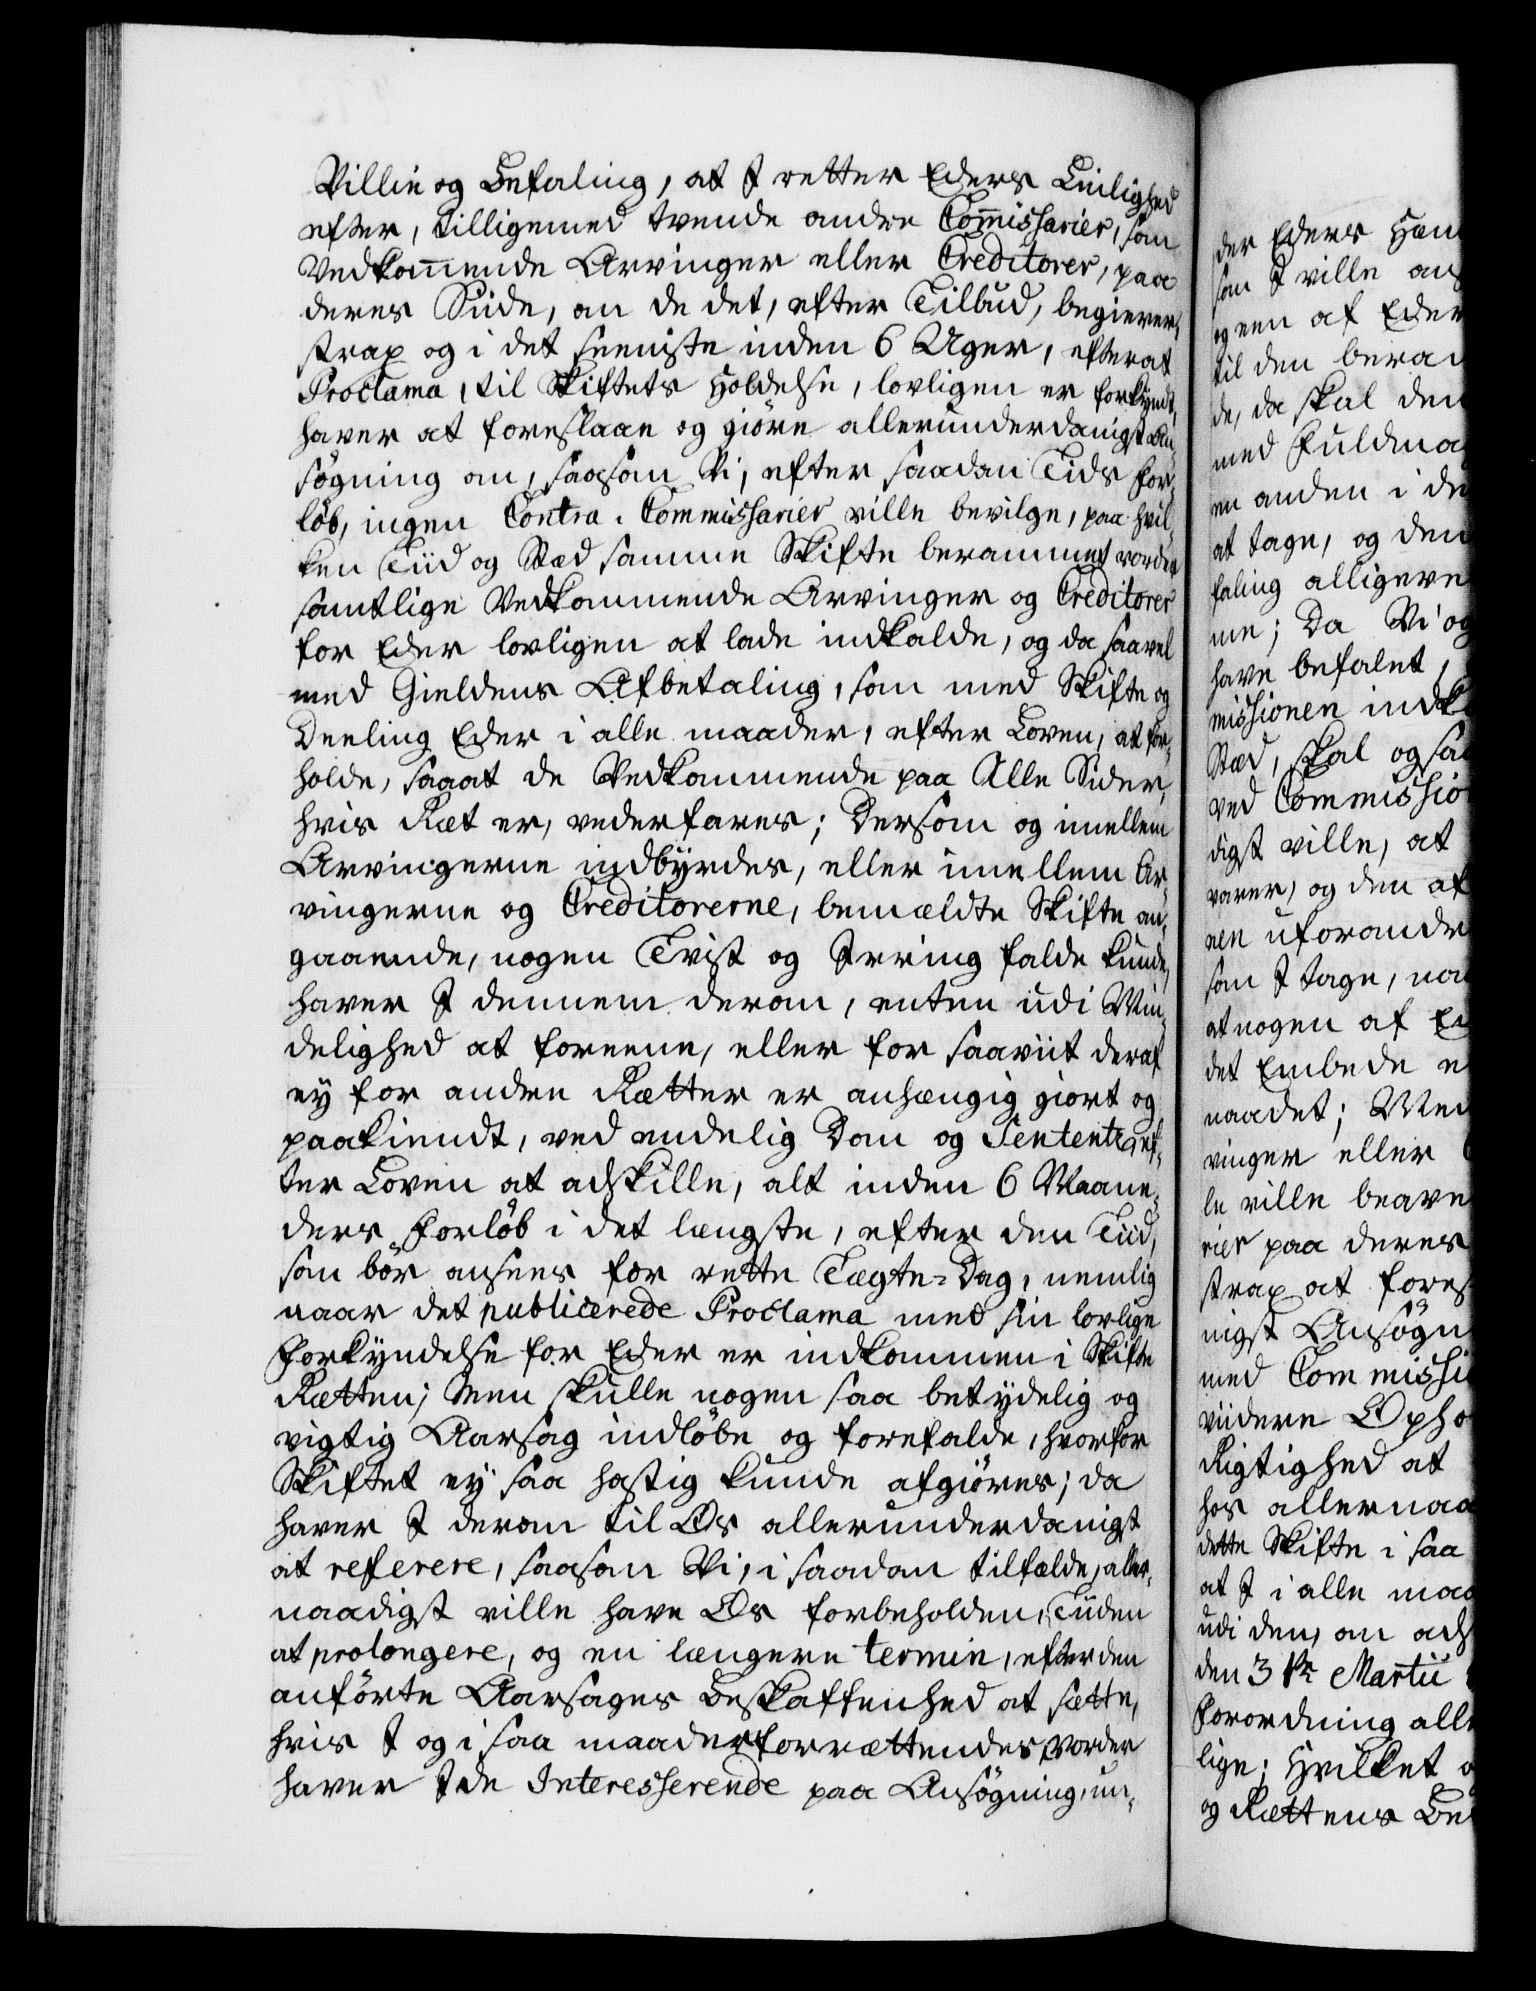 Villie og Befaling, at I retter Eders Leilighed
efter, tilligemed tvende andre Commissarier, som
Vedkommende Arvinger eller Creditorer, paa
deres Siide, om de det, efter Tilbud, begierer,
strax og i det seeniste inden 6 Uger, efterat
Proclama, til Skiftets Holdelse, lovligen er forkyndt,
haver at foreslaae og giøre allerunderdanigst An-
søgning om, saasom Vi, efter saadan Tids For-
løb, ingen Contra-Commissarier ville bevilge, paa hvil-
ken Tiid og Stæd samme Skifte berammet vorder
samtlige Vedkommende Arvinger og Creditorer
for Eder lovligen at lade indkalde, og da saavel
med Gieldens Afbetaling, som med Skifte og
Deeling Eder i alle maader, efter Loven, at for-
holde, saaat de Vedkommende paa Alle Sider,
hvis Ræt er, vederfares; Dersom og imellem
Arvingerne indbyrdes, eller imellem Ar-
vingerne og Creditorerne, bemældte Skifte an-
gaaende, nogen Tvist og Irring falde kunde,
haver I dennem derom, enten udi Min-
delighed at foreene, eller for saaviit deraf
ey for andre Rætter er anhængig giort og
paakiendt, ved endelig Dom og Sententz, ef-
ter Loven at adskille, alt inden 6 Maane-
ders Forløb i det længste, efter den Tiid,
som bør ansees for rette Tægte-Dag, nemlig
naar det publicerede Proclama med sin lovlige
Forkyndelse for Eder er indkommen i Skifte
Rætten; Men skulle nogen saa betydelig og
vigtig Aarsag indløbe og forefalde, hvorfor
Skiftet ey saa hastig kunde afgiøres; da
haver I derom til Os allerunderdanigst
at referere, saasom Vi, i saadan tilfælde, aller-
naadigst ville have Os forbeholden, Tiiden
at prolongere, og en længere termin, efter den
anførte Aarsages Beskaffenhed at sætte,
hvis I og i saa maader forrættendes vorder
haver I de Interesserende paa Ansøgning, un-
der Eders Hæn
som I ville ans
og een af Eder
til den beram
de, da skal den
med Fuldma
en anden i de
at tage, og den
faling alligeve
me; Da Vi og
have befalet,
missionen indk
Stæd, skal og saa
ved Commissio
digst ville, at
varer, og den af
nen uforandr
som I tage, naa
at nogen af Ed
det Embede e
naadet; Men
vinger eller
le ville begve
rier paa deres
strax at fores
nigst Ansøgn
med Commissi
viidere Opho
Rigtighed at
hos allernaa
dette Skifte i saa
at I i alle maa
udi den, om ads
den 31te Martii
Forordning all
lige; Hvilket o
og Rættens Be